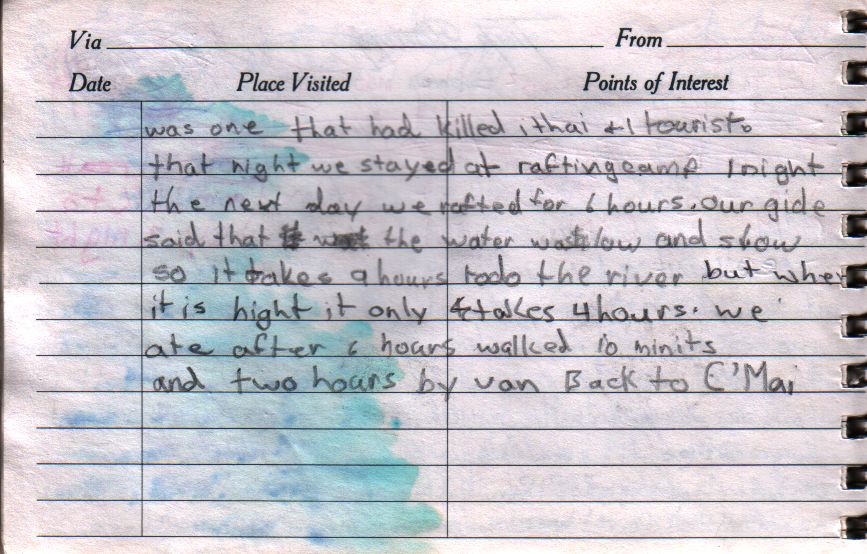 Via From
Date Place Visited Points of Interest
was one that had killed 1 thai +1 tourist.
that night we stayed at rafting camp 1 night
the next day we rafted for 6 hours. our gide
said that the water was low and slow
so it takes 9 hours todo the river but when
it is hight it only takes 4 hours. we
ate after 6 hours walked 10 minits
and two hours by van Back to C'Mai